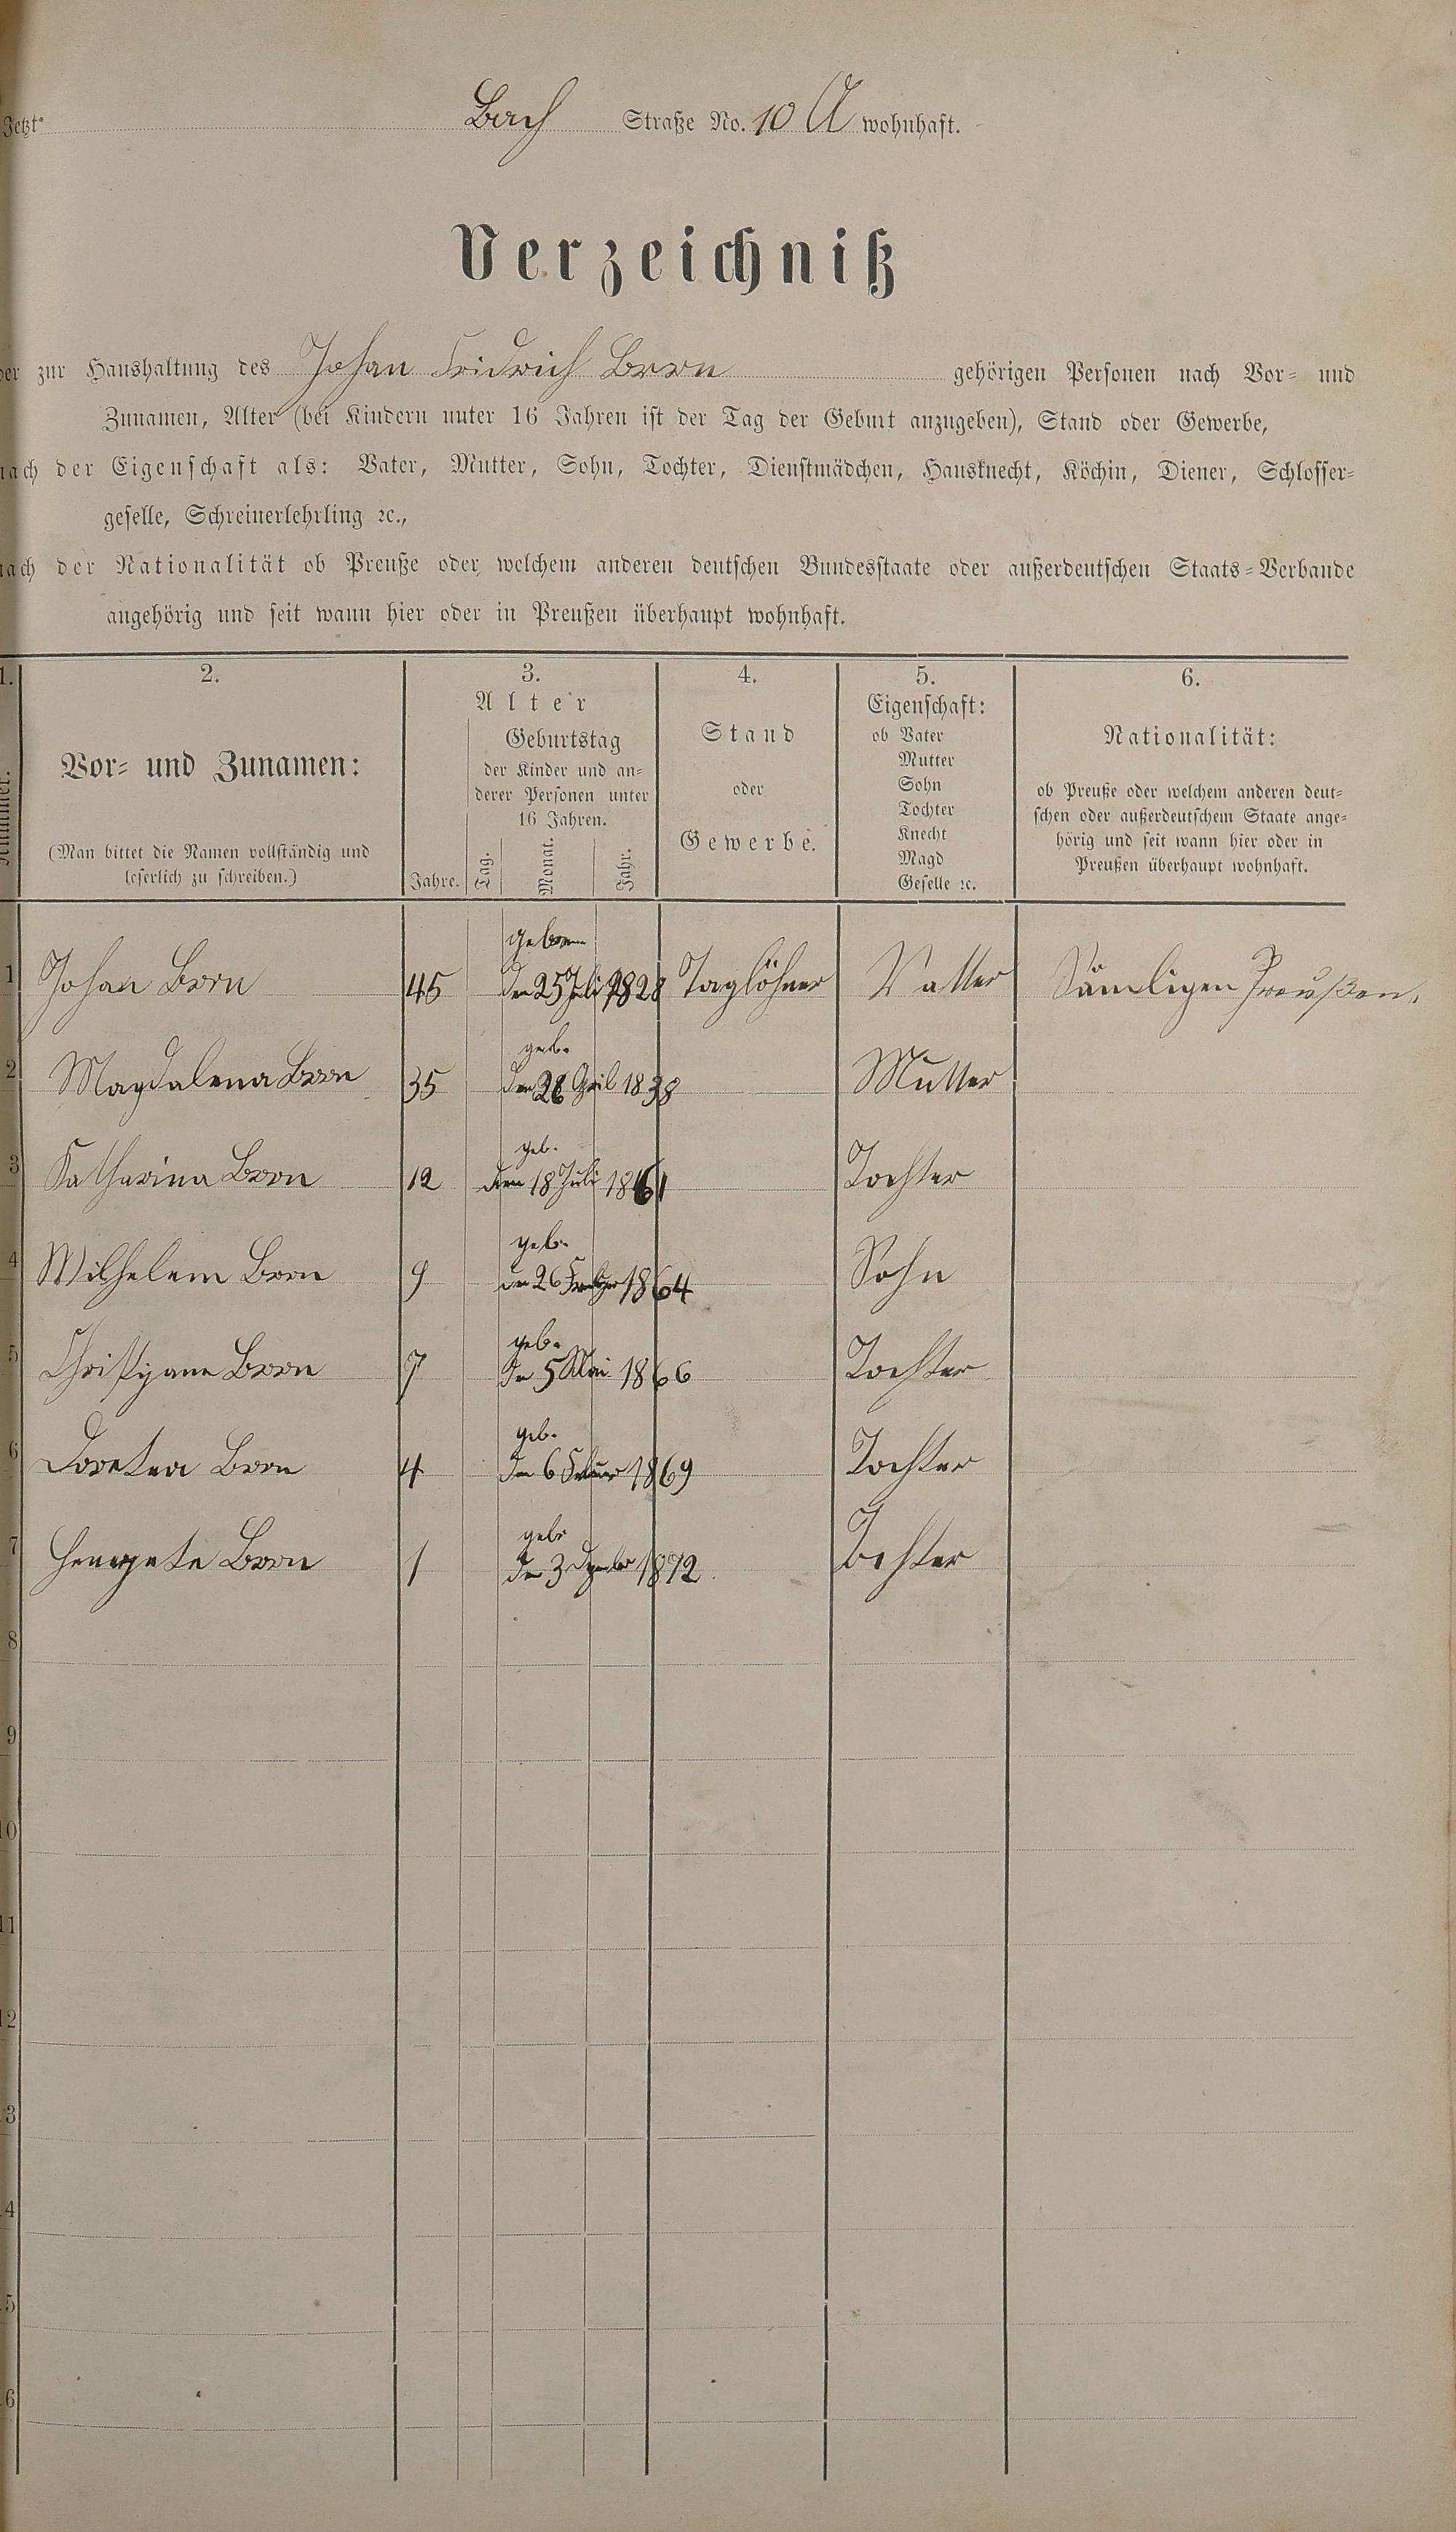 Jetzt Bach Straße No. 10 A wohnhaft.
Verzeichniß
der zur Haushaltung des Johan Fridrich Born gehörigen Personen nach Vor- und
Zunamen, Alter (bei Kindern unter 16 Jahren ist der Tag der Geburt anzugeben), Stand oder Gewerbe,
nach der Eigenschaft als: Vater, Mutter, Sohn, Tochter, Dienstmädchen, Hausknecht, Köchin, Diener, Schlosser-
geselle, Schreinerlehrling ꝛc.,
nach der Nationalität ob Preuße oder welchem anderen deutschen Bundesstaate oder außerdeutschen Staats-Verbande
angehörig und seit wann hier oder in Preußen überhaupt wohnhaft.
1. 2. 3. 4. 5. 6.
Nummer.
Vor- und Zunamen:
(Man bittet die Namen vollständig und
leserlich zu schreiben.)
Alter
Jahre.
Geburtstag
der Kinder und an-
derer Personen unter
16 Jahren.
Tag. Monat. Jahr.
Stand
oder
Gewerbe.
Eigenschaft:
ob Vater
Mutter
Sohn
Tochter
Knecht
Magd
Geselle ꝛc.
Nationalität:
ob Preuße oder welchem anderen deut-
schen oder außerdeutschem Staate ange-
hörig und seit wann hier oder in
Preußen überhaupt wohnhaft.
geboren
1 Johan Born 45 den 25 Juli 1828 Taglöhner Vatter Sämligen Preußen.
geb.
2 Magdalena Born 35 den 28 April 1838 Mutter
geb.
3 Katharina Born 12 den 18 Juli 1861 Tochter
geb.
4 Wilhelem Born 9 den 26 1864 Sohn
geb.
5 Christjane Born 7 den 5 Mai 1866 Tochter
geb.
6 Doretea Born 4 den 6 Februar 1869 Tochter
geb
7 Born 1 den 3 Dezember 1872 Tochter
8
9
10
11
12
13
14
15
16